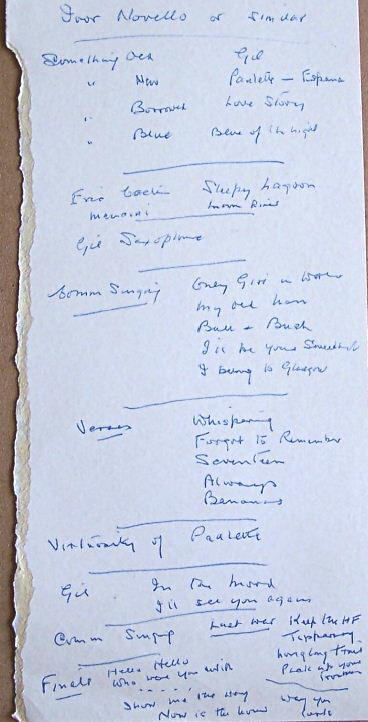 Ivor Novello or Similar
Something Old Gil
" New Paulette - Espana
" Borrowed Love Story
" Blue Blue of the Night
Eric Sleepy Lagoon
Moon River
Gil Saxophone
Comm Singing Only Girl in World
My old
Bull + Bush
I'll be your Sweetheart
I belong to Glasgow
Verses Whispering
Forgot to Remember
Seventeen
Always
Bananas
Virtuosity of Paulette
Gil In the Mood
I'll see you again
Comm Singing Last War Keep the HF
Tipperary
Long long trail
Pack up your
Finale Hello Hello
Who were you with
Show me the way
Now is the hour